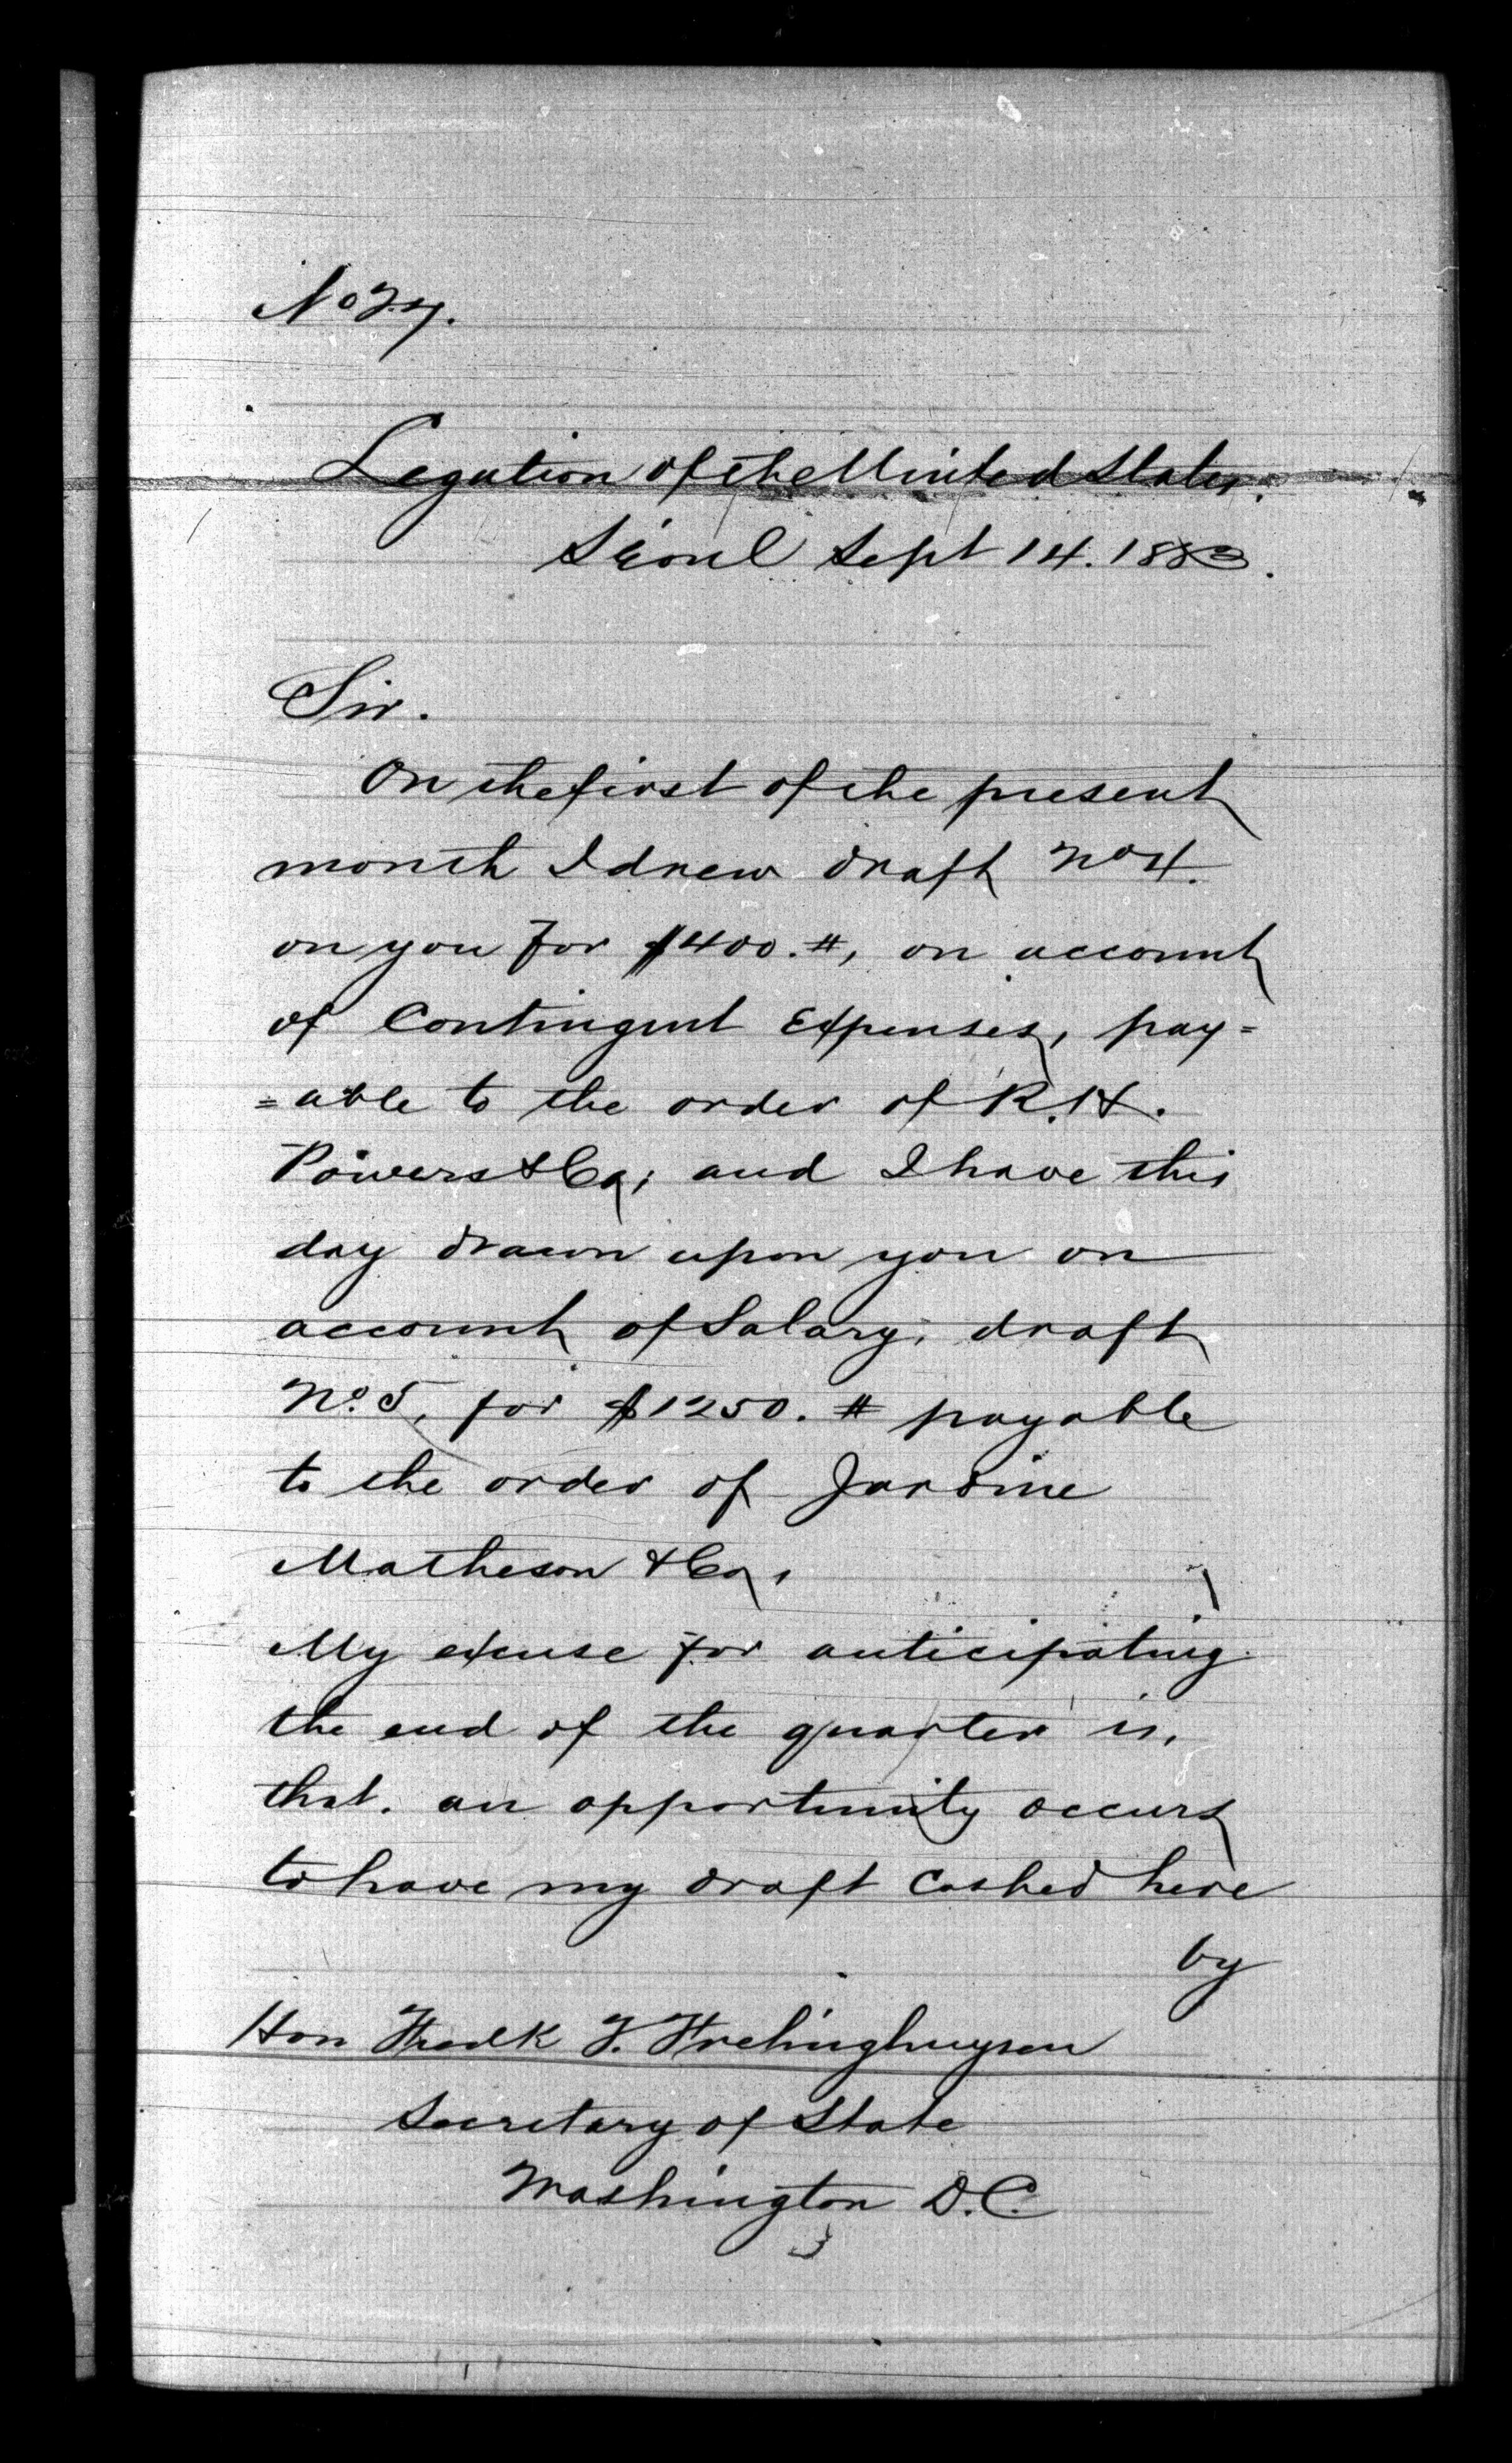 No 27.
Legation of the United States.
Séoul Sept 14. 1883.
Sir.
On the first of the present
month I drew draft No 4.
on you for $400.#, on account
of Contingent Expenses, pay=
=able to the order of R. H.
Powers & Co; and I have this
day drawn upon you on
account of Salary, draft
No. 5, for $1250. # payable
to the order of Jardine
Matheson & Co,
My excuse for anticipating
the end of the quarter is,
that. an opportunity occurs
to have my draft cashed here
by
Hon Fredk T. Frelinghuysen
Secretary of State
Washington D.C.